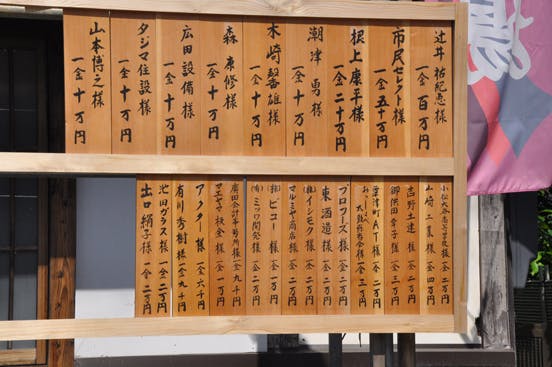 辻井祐紀恵様 一金 百万円
市民セレクト様 一金 五十万円
根上康平様 一金 二十万円
潮津 勇様 一金 十万円
木崎馨雄様 一金 十万円
森 康修様 一金 十万円
広田設備様 一金 十万円
タジマ住設様 一金 十万円
山本博之様 一金 十万円
山崎工業様 一金 四万円
吉野土建様 一金 二万円
御供田幸子様 一金 三万円
粟津町AT様 一金 二万円
プロフーズ様 一金 二万円
東酒造様 一金 二万円
(株)イシモク様 一金 二万円
マルミヤ商店様 一金 二万円
(株)ビコー様 一金 二万円
(有)ミツワ開発様 一金 二万円
廣田会計事務所様 一金 九千円
マエヤマ板金様 一金 一万円
アクター様 一金 六千円
有川秀樹様 一金 九千円
池田ガラス様 一金 二万円
出口絹子様 一金 二万円